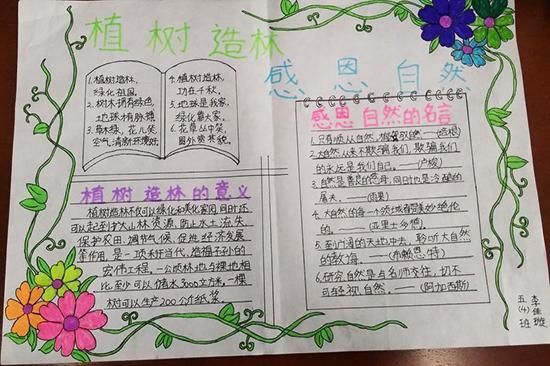 植树造林
感恩自然
1.植树造林,
绿化祖国.
2.树木拥有绿色,
地球才有脉搏
3.草木绿,花儿笑,
空气清新环境好.
4.植树造林,
功在千秋.
5.地球是我家,
绿化靠大家.
6.花草丛中笑,
园外赏其貌.
植树造林的意义
植树造林不仅可以绿化和美化家园,同时还
可以起到扩大山林资源,防止水土流失,
保护农田,调节气候,促进经济发展
等作用,是一项利于当代,造福子孙的
宏伟工程.一公顷林地与裸地相
比至少可以储水3000立方米.一棵
树可以生产200公斤纸浆.
感恩自然的名言
1.只有顺从自然,才能驾驭自然.——(培根)
2.大自然从来不欺骗我们,欺骗我们
的永远是我们自己.——(卢梭)
3.自然是善良的慈母,同时也是冷酷的
屠夫.——(雨果)
4.大自然的每一个领域都是美妙绝伦
的.——(亚里士多德)
5.到广阔的天地中去,聆听大自然
的教诲.——(布赖恩特)
6.研究自然是与名师交往,切不
可轻视自然.——(阿加西斯)
五(4)班
李佳璇